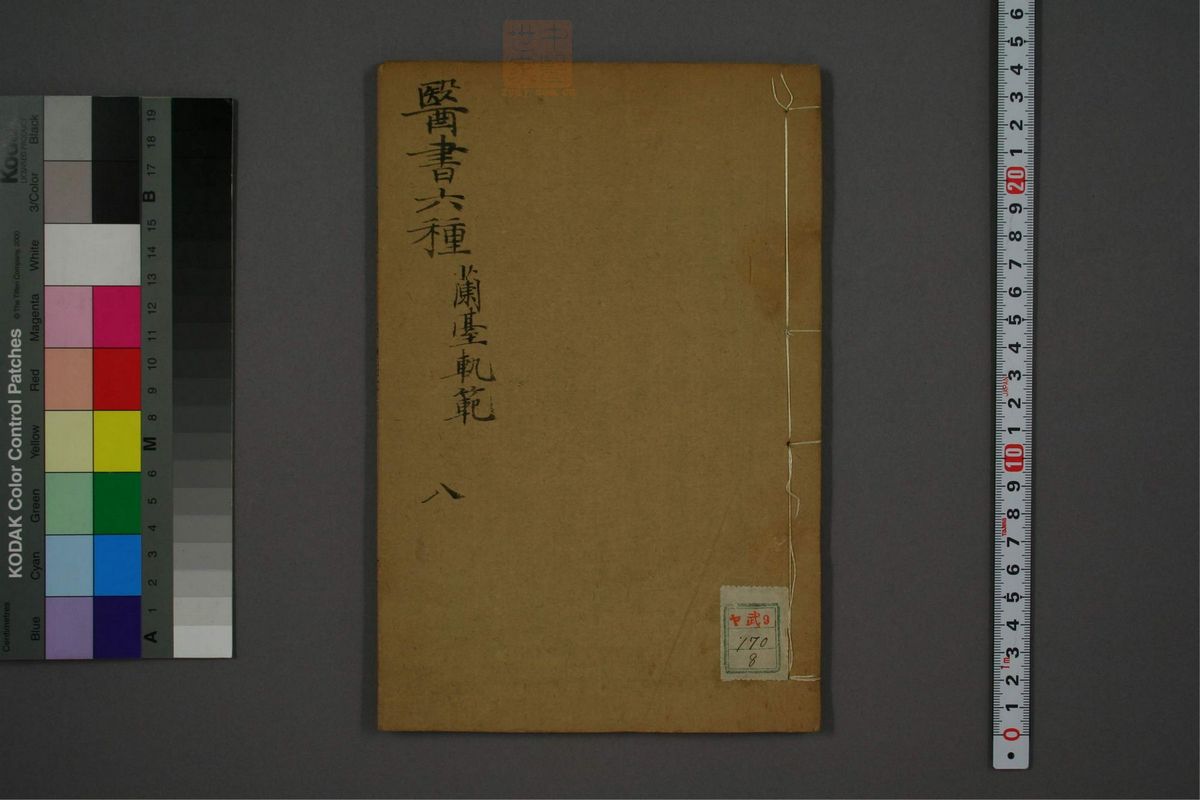 醫書六種
蘭臺軌範
八
ヤ武9
170
8
KODAK Color Control Patches
© The Tiffen Company, 2000
Kodak
LICENSED PRODUCT
Centimetres
Blue
Cyan
Green
Yellow
Red
Magenta
White
3/Color
Black
1 2 3 4 5 6 8 9 10 11 12 13 14 15 17 18 19
A
M
B
6
5
4
3
2
1
20
9
8
7
6
5
4
3
2
1
10
9
8
7
6
5
4
3
2
1
0
1m